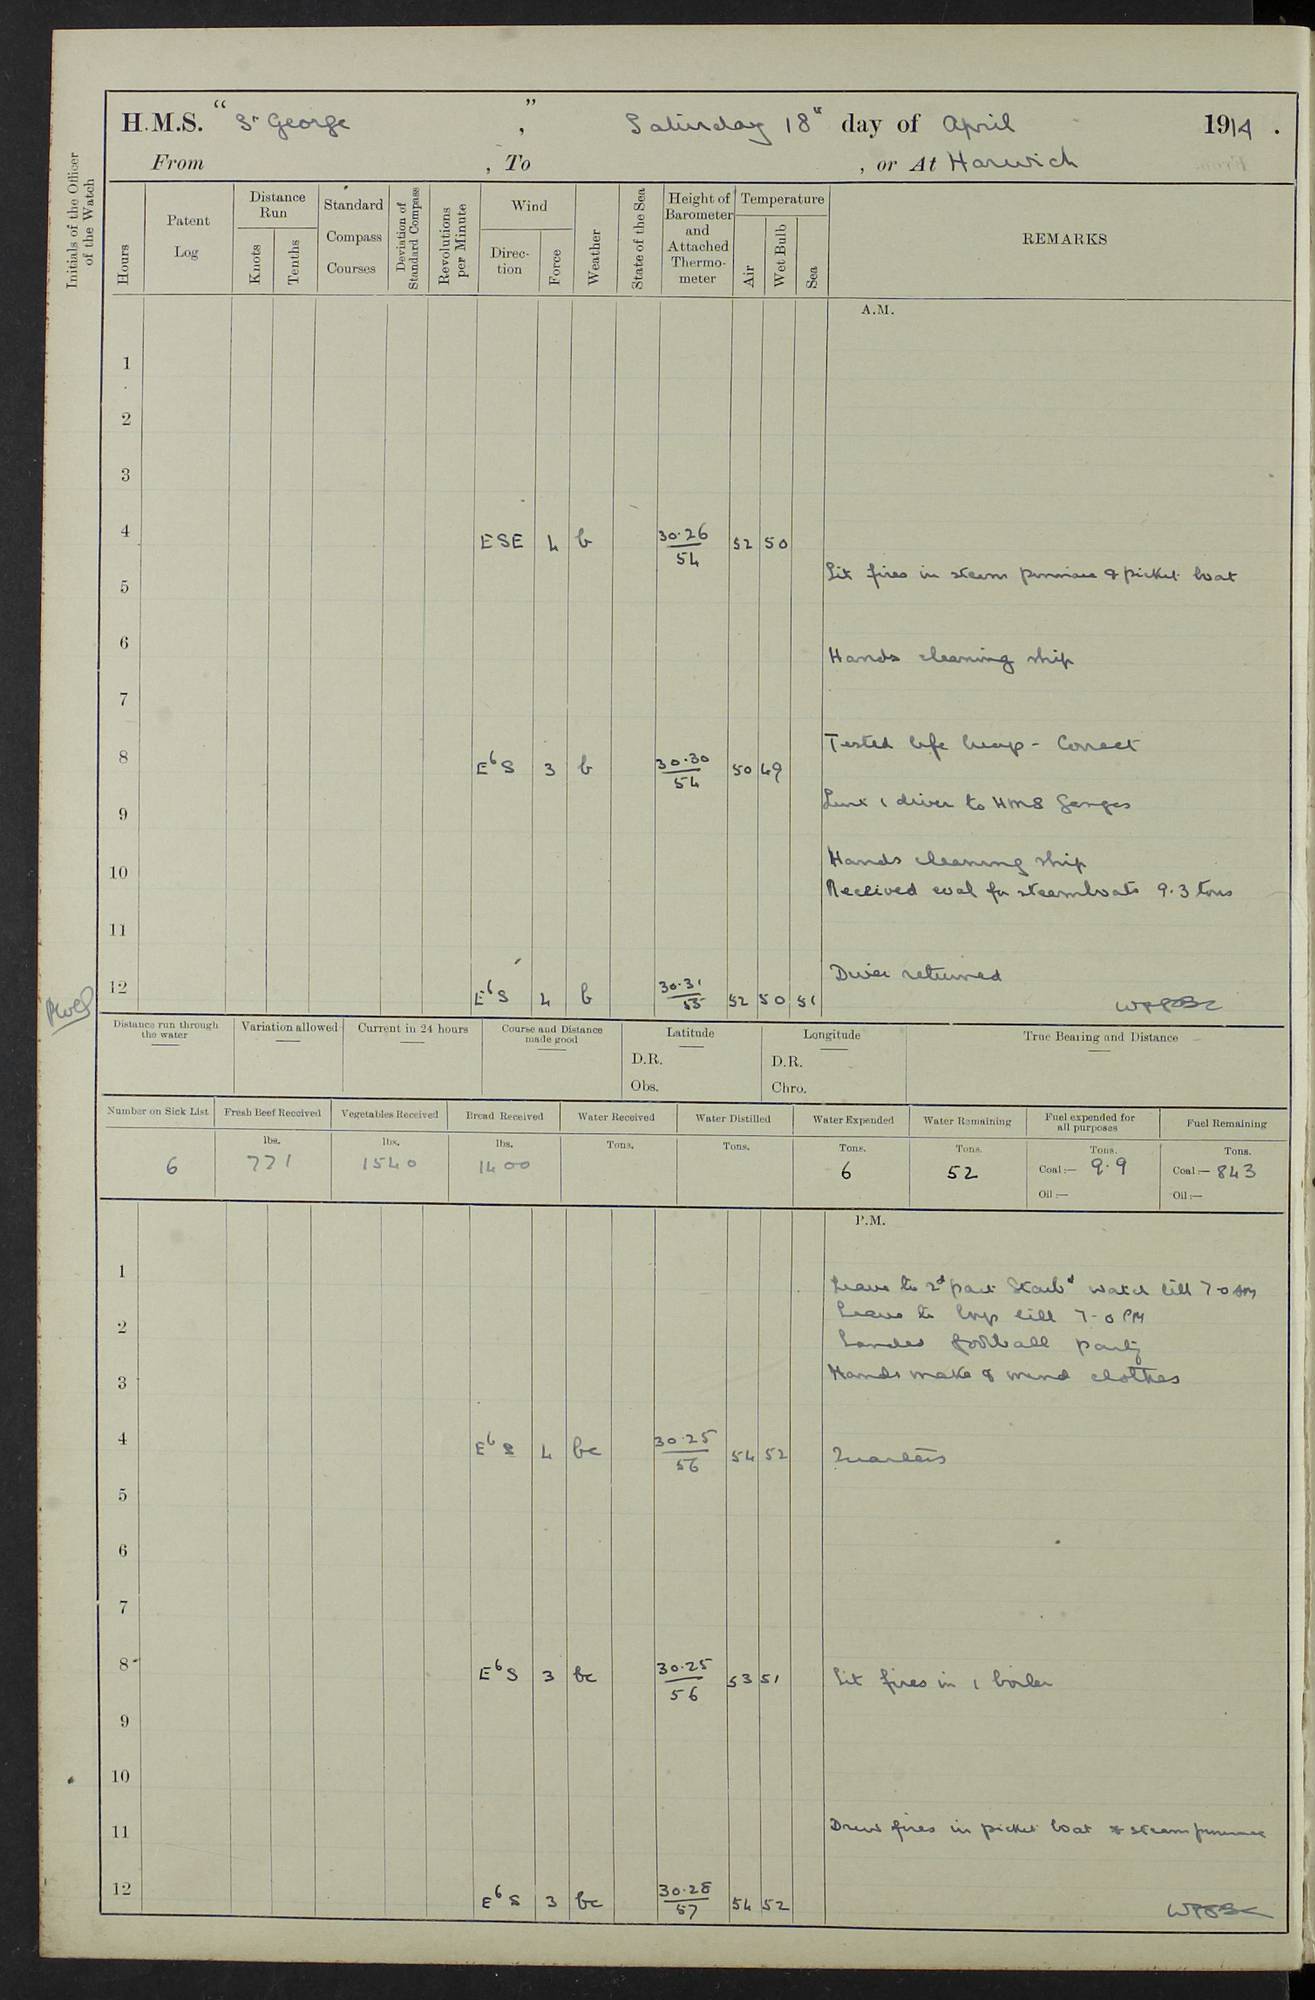 H.M.S. "St George", Saturday 18th day of April 1914.
From , To , or At Harwich
Initials of the Officer of the Watch
Hours
Patent Log
Distance Run
Knots
Tenths
Standard Compass Courses
Deviation of Standard Compass
Revolutions per Minute
Wind
Direction
Force
Weather
State of the Sea
Height of Barometer and Attached Thermometer
Temperature
Air
Wet Bulb
Sea
REMARKS
A.M.
1
2
3
4 ESE 4 b 30.26 54 52 50
Lit fires in steam pinnace & picket boat
5
6
Hands cleaning ship
7
Tested life buoys - Correct
8 EbS 3 b 30.30 54 50 49
Sent 1 diver to HMS Ganges
9
Hands cleaning ship
10
Received coal for steamboats 9.3 tons
11
Diver returned
12 EbS 4 b 30.31 55 52 50 51
Distance run through the water
Variation allowed
Current in 24 hours
Course and Distance made good
Latitude
D.R.
Obs.
Longitude
D.R.
Chro.
True Bearing and Distance
Number on Sick List Fresh Beef Received Vegetables Received Bread Received Water Received Water Distilled Water Expended Water Remaining Fuel expended for all purposes Fuel Remaining
lbs. lbs. lbs. Tons. Tons. Tons. Tons. Tons. Tons.
6 771 1540 1400 6 52 Coal:— 9.9 Coal:— 843
Oil:— Oil:—
P.M.
1
Leave to 2d part Starbd watch till 7-0 AM
Leave to boys till 7-0 PM
2
Landed football party
3 Hands make & mend clothes
4 EbS 4 bc 30.25 56 54 52 Quarters
5
6
7
8 EbS 3 bc 30.25 56 53 51 Lit fires in 1 boiler
9
10
11 Drew fires in picket boat & steam pinnace
12 EbS 3 bc 30.28 57 54 52